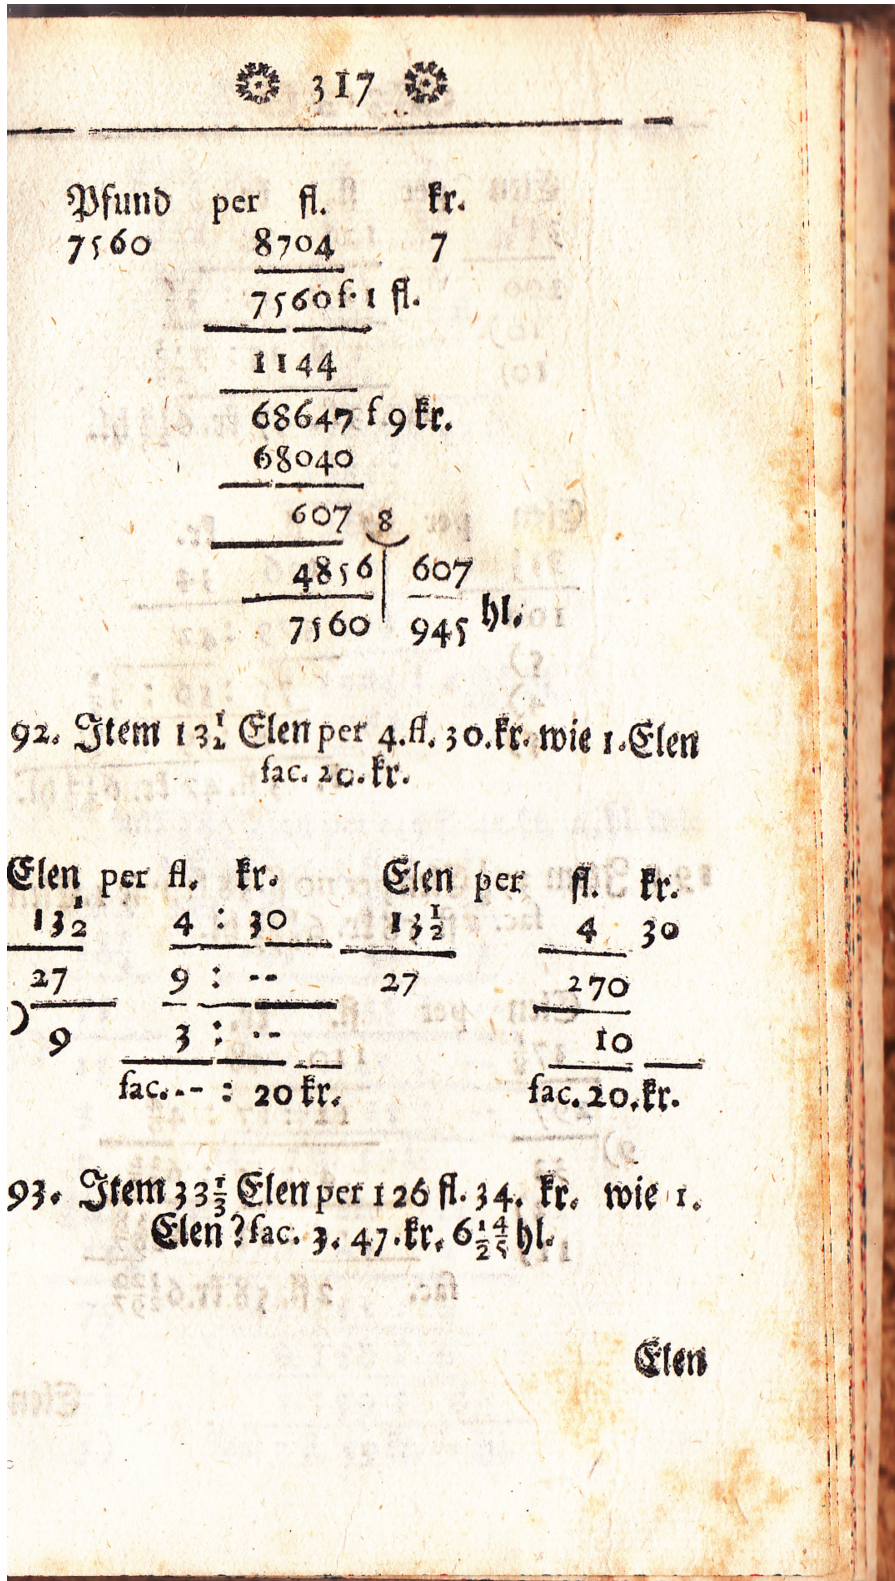 317
Pfund per fl. kr.
7560 8704 7
7560 f. 1 fl.
1144
68647 f 9 kr.
68040
607 8
4856 607
7560 945 hl.
92. Item 13 1/2 Elen per 4. fl. 30. kr. wie 1. Elen
fac. 20. kr.
Elen per fl. kr. Elen per fl. kr.
13 1/2 4 : 30 13 1/2 4 30
27 9 : -- 27 270
) 9 3 : -- 10
fac. -- : 20 kr. fac. 20. kr.
93. Item 33 1/3 Elen per 126 fl. 34. kr. wie 1.
Elen? fac. 3. 47. kr. 6 1/2 4/5 hl.
Elen